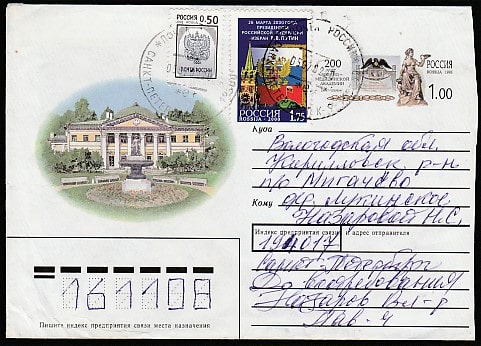 РОССИЯ 0.50
ПОЧТА РОССИИ
26 МАРТА 2000 ГОДА
ПРЕЗИДЕНТОМ
РОССИЙСКОЙ ФЕДЕРАЦИИ
ИЗБРАН В.В.ПУТИН
РОССИЯ
ROSSIJA · 2000 1.75
САНКТ-ПЕТЕРБУРГ
РОССИЯ
200
АКАДЕМИИ
РОССИЯ
ROSSIJA 1998
1.00
Куда
Вологодская обл.
Кирилловск. р-н
п/о Мигачево
Кому дер. Лукинское
Назаровой Н.С.
Индекс предприятия связи и адрес отправителя
194017
Санкт-Петербург
До востребования
Назаров Вл-р
Пав-ч
161108
Пишите индекс предприятия связи места назначения